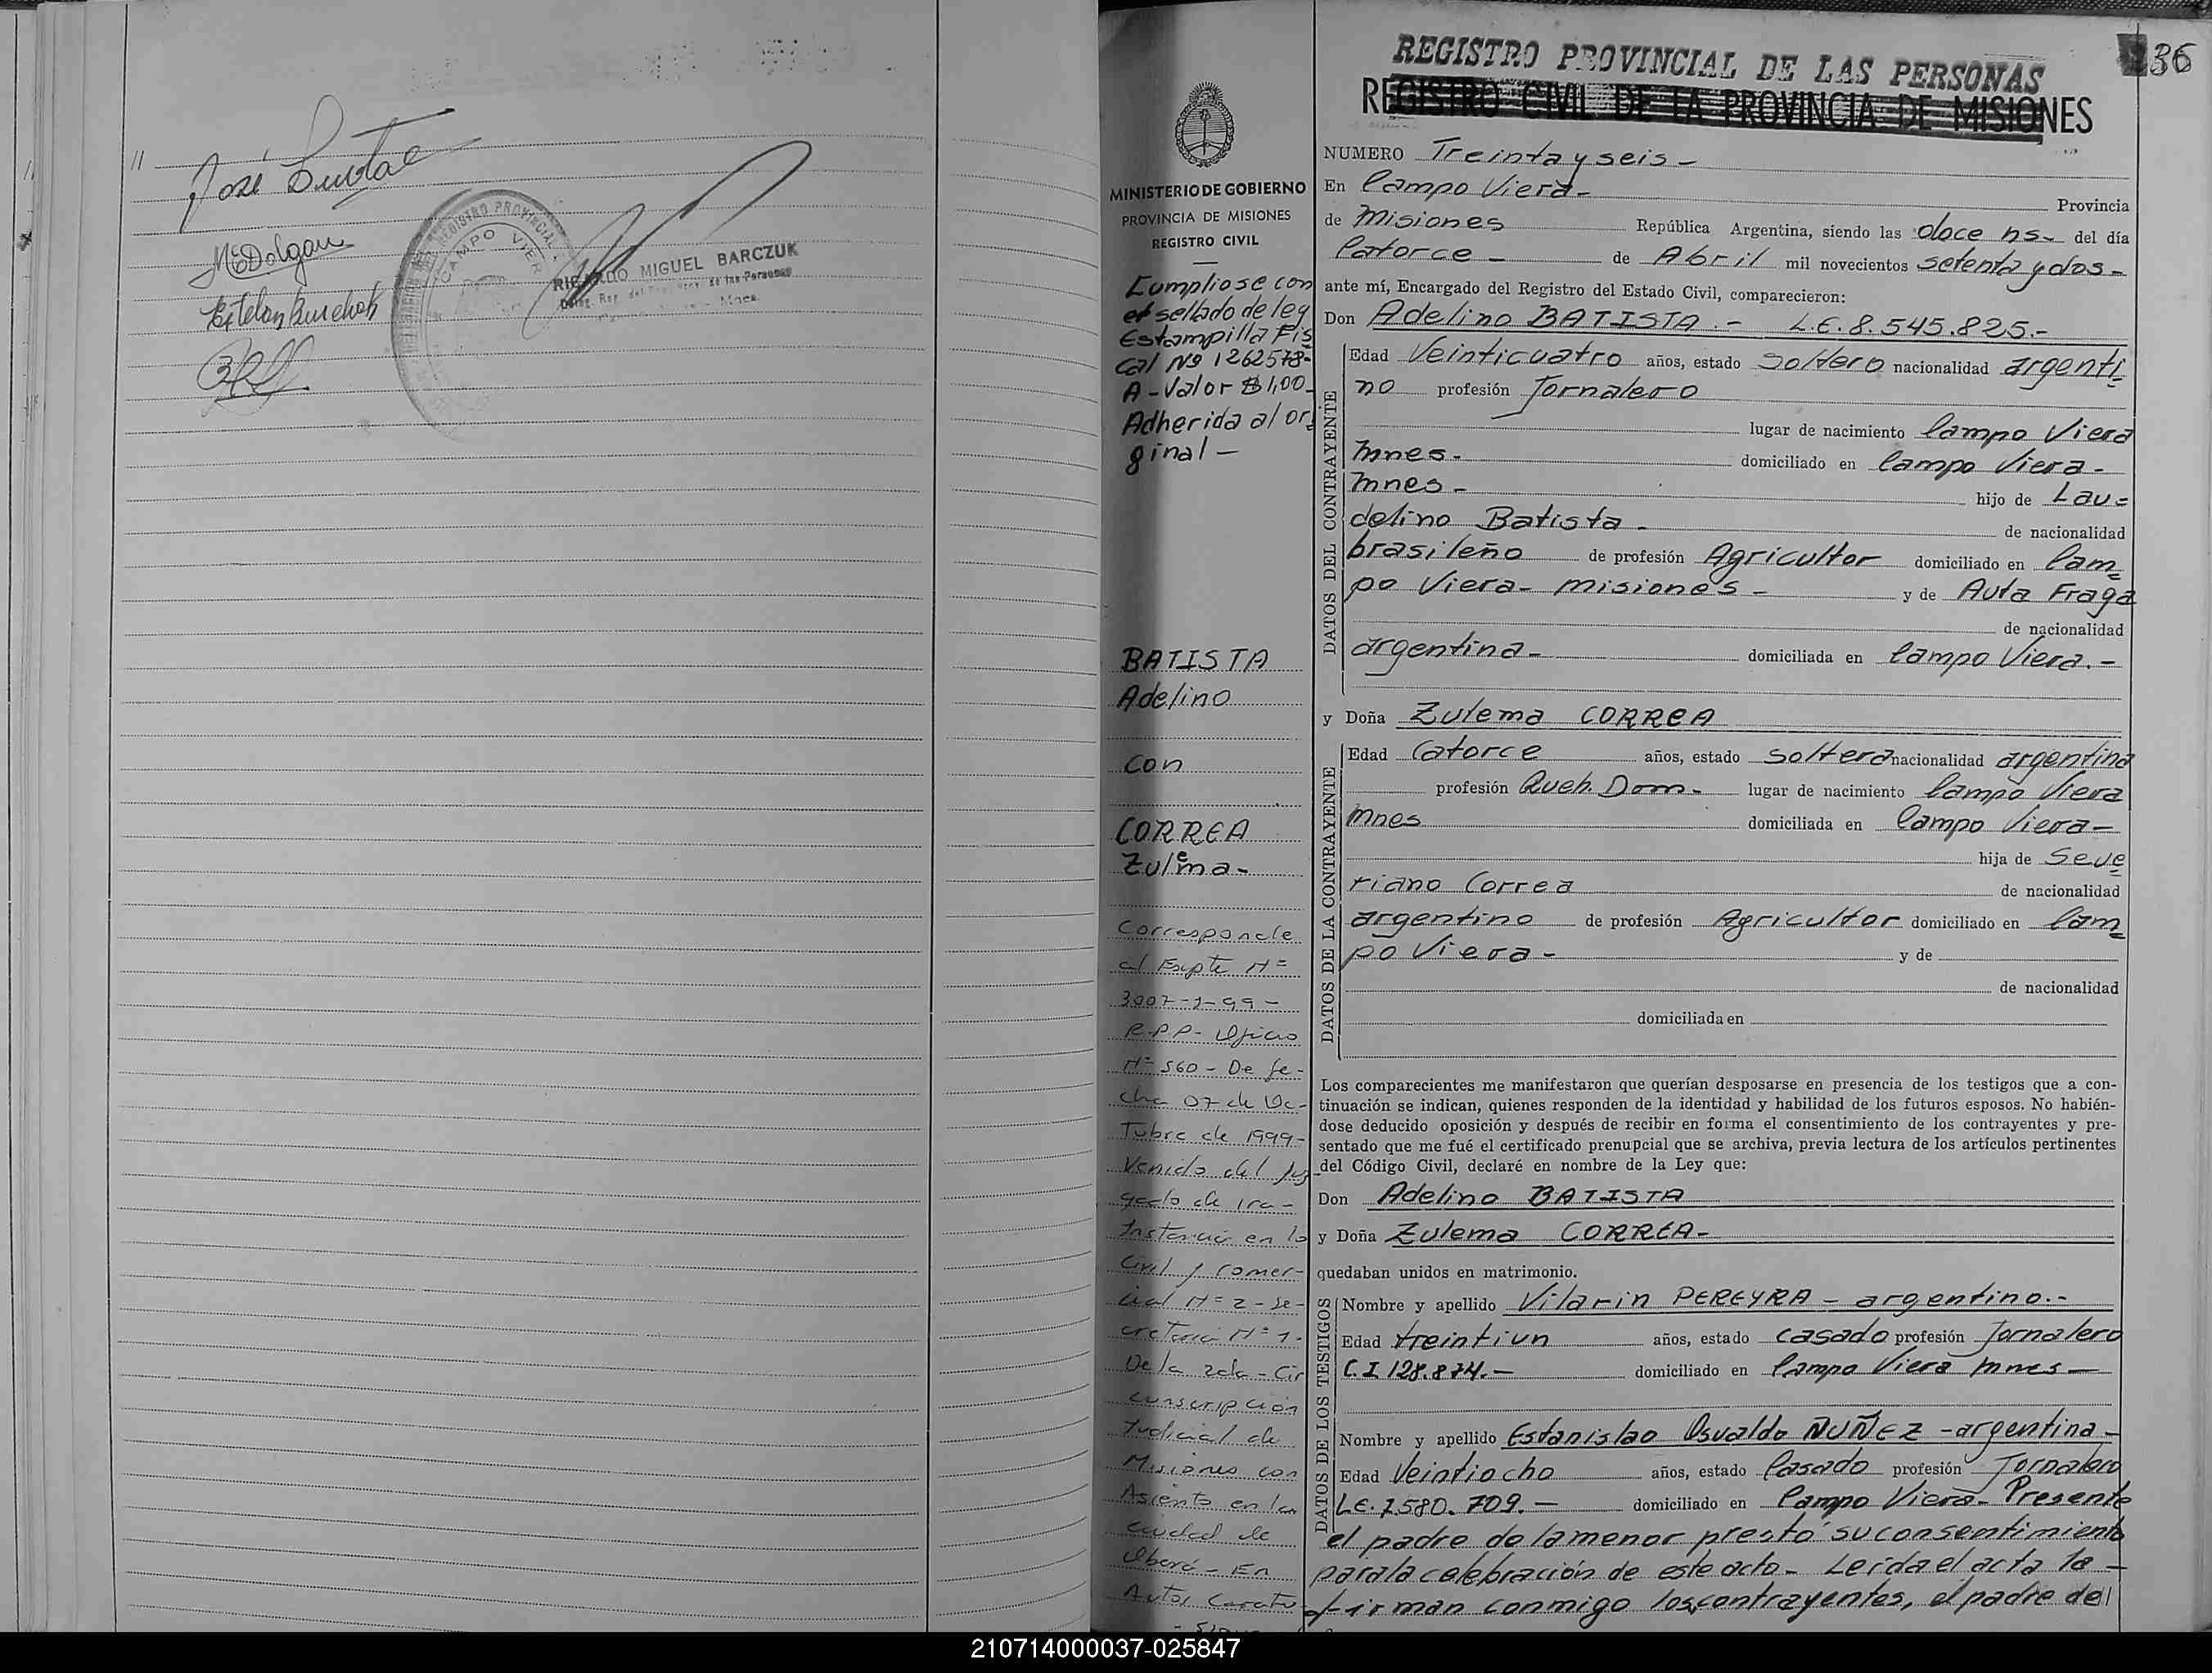 //
José
REGISTRO PROVINCIAL
CAMPO VIER
RICARDO MIGUEL BARCZUK
Deleg. Reg. del Reg. Prov. de las Personas
MEDolgau
REGISTRO PROVINCIAL DE LAS PERSONAS
36
REGISTRO CIVIL DE LA PROVINCIA DE MISIONES
MINISTERIO DE GOBIERNO
PROVINCIA DE MISIONES
REGISTRO CIVIL
Cumpliose con
el sellado de ley
Estampilla Fis
cal Nº 1262578-
A-Valor $ 1,00-
Adherida al ori
ginal -
BATISTA
Adelino
Con
CORREA
Zulema-
Corresponde
al Expte Nº
3007-1-99-
R.P.P- Oficio
Nº 560 - De fe-
cha 07 de Oc-
Tubre de 1999-
Venido del Juz
gado de 1ra-
Instancia en lo
Civil y Comer-
cial Nº 2 - Se-
cretaria Nº 1-
De la 2da - Cir
cunscripción
Judicial de
Misiones con
Asiento en la
ciudad de
Oberá - En
Autos Caratu
NUMERO Treinta y seis -
En Campo Viera - Provincia
de Misiones República Argentina, siendo las doce hs- del día
Catorce - de Abril mil novecientos setenta y dos -
ante mí, Encargado del Registro del Estado Civil, comparecieron:
Don Adelino BATISTA.- L.E. 8.545.825.-
DATOS DEL CONTRAYENTE
Edad Veinticuatro años, estado soltero nacionalidad argenti-
no profesión Jornalero
lugar de nacimiento Campo Viera
Mnes. domiciliado en Campo Viera-
Mnes - hijo de Lau=
delino Batista - de nacionalidad
brasileño de profesión Agricultor domiciliado en Cam=
po Viera- Misiones - y de Auta Fraga
de nacionalidad
argentina - domiciliada en Campo Viera.-
y Doña Zulema CORREA
DATOS DE LA CONTRAYENTE
Edad Catorce años, estado soltera nacionalidad argentina
profesión Queh. Dom- lugar de nacimiento Campo Viera
Mnes domiciliada en Campo Viera-
hija de Seve
riano Correa de nacionalidad
argentino de profesión Agricultor domiciliado en Cam=
po Viera - y de
de nacionalidad
domiciliada en
Los comparecientes me manifestaron que querían desposarse en presencia de los testigos que a con-
tinuación se indican, quienes responden de la identidad y habilidad de los futuros esposos. No habién-
dose deducido oposición y después de recibir en forma el consentimiento de los contrayentes y pre-
sentado que me fué el certificado prenupcial que se archiva, previa lectura de los artículos pertinentes
del Código Civil, declaré en nombre de la Ley que:
Don Adelino BATISTA
y Doña Zulema CORREA-
quedaban unidos en matrimonio.
DATOS DE LOS TESTIGOS
Nombre y apellido Vilarin PEREYRA - argentino.-
Edad treintiun años, estado casado profesión Jornalero
C.I 128.874.- domiciliado en Campo Viera Mnes -
Nombre y apellido Estanislao Osvaldo ÑUÑEZ - argentina -
Edad Veintiocho años, estado Casado profesión Jornalero
LE. 7.580.709.- domiciliado en Campo Viera- Presente
el padre de la menor prestó su consentimiento
para la celebración de este acto- Leída el acta la -
firman conmigo los contrayentes, el padre de
210714000037-025847